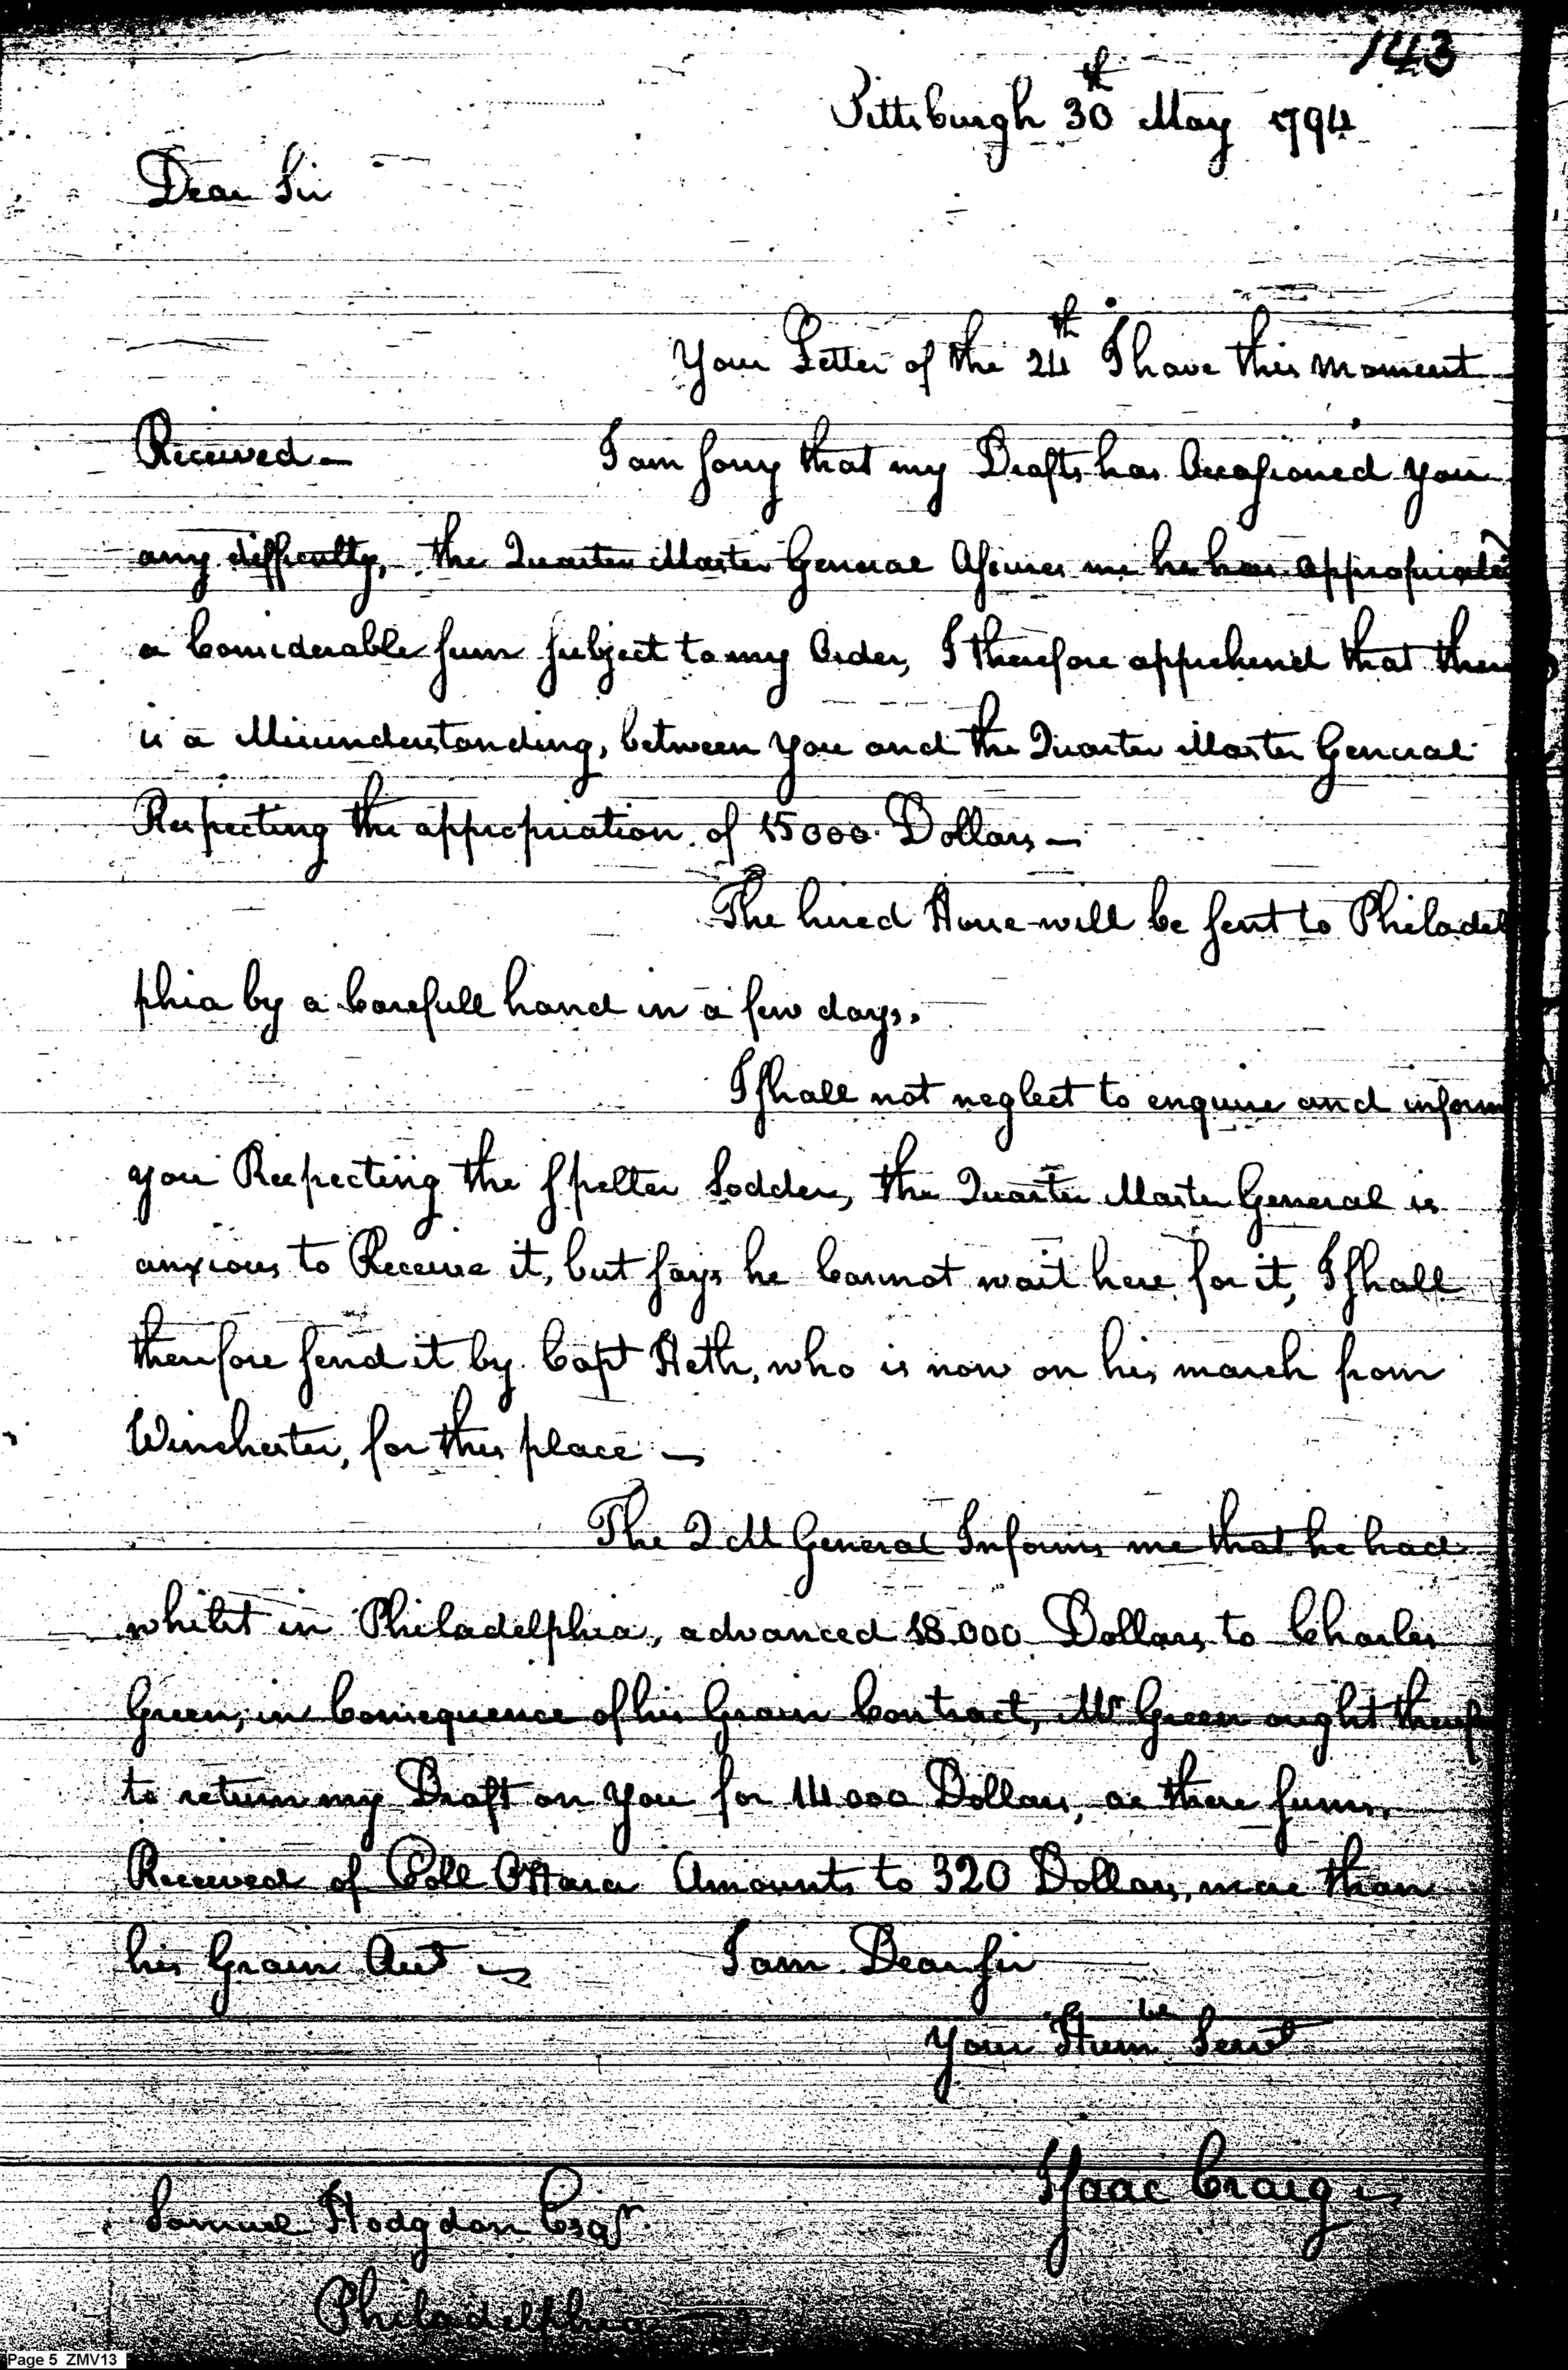 143
Pittsburgh 30th May 1794
Dear Sir
Your Letter of the 24th I have this moment
Received— I am sorry that my Drafts has Occasioned you
any difficulty, the Quarter Master General Assures me he has appropriated
a Considerable sum subject to my Order, I therefore apprehend that there
is a Misunderstanding, between you and the Quarter Master General
Respecting the appropriation of 15000 Dollars—
The hired Horse will be sent to Philadel
phia by a Carefull hand in a few days.
I shall not neglect to enquire and inform
you Respecting the Spelter Sodder, the Quarter Master General is
anxious to Receive it, but says he Cannot wait here for it, I shall
therefore send it by Capt Heth, who is now on his march from
Winchester, for this place—
The Q M General Informs me that he had
whilst in Philadelphia, advanced 18.000 Dollars to Charles
Green, in Consequence of his Grain Contract, Mr Green ought
to return my Draft on you for 14000 Dollars, as these sums
Received of Coll OHara Amounts to 320 Dollars, more than
his Grain Acct— I am Dear sir
Your Humbe Servt
Isaac Craig
Samuel Hodgdon Esqr.
Philadelphia
Page 5 ZMV13